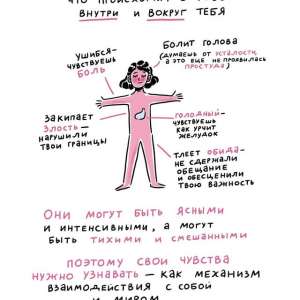 ВНУТРИ И ВОКРУГ ТЕБЯ
УШИБСЯ-
ЧУВСТВУЕШЬ
БОЛЬ
БОЛИТ ГОЛОВА
(ДУМАЕШЬ ОТ УСТАЛОСТИ,
А ЭТО ЕЩЕ НЕ ПРОЯВИЛАСЬ
ПРОСТУДА)
ЗАКИПАЕТ
ЗЛОСТЬ —
НАРУШИЛИ
ТВОИ ГРАНИЦЫ
ГОЛОДНЫЙ-
ЧУВСТВУЕШЬ
КАК УРЧИТ
ЖЕЛУДОК
ТЛЕЕТ ОБИДА-
НЕ СДЕРЖАЛИ
ОБЕЩАНИЕ
И ОБЕСЦЕНИЛИ
ТВОЮ ВАЖНОСТЬ
ОНИ МОГУТ БЫТЬ ЯСНЫМИ
И ИНТЕНСИВНЫМИ, А МОГУТ
БЫТЬ ТИХИМИ И СМЕШАННЫМИ
ПОЭТОМУ СВОИ ЧУВСТВА
НУЖНО УЗНАВАТЬ — КАК МЕХАНИЗМ
ВЗАИМОДЕЙСТВИЯ С СОБОЙ
И МИРОМ